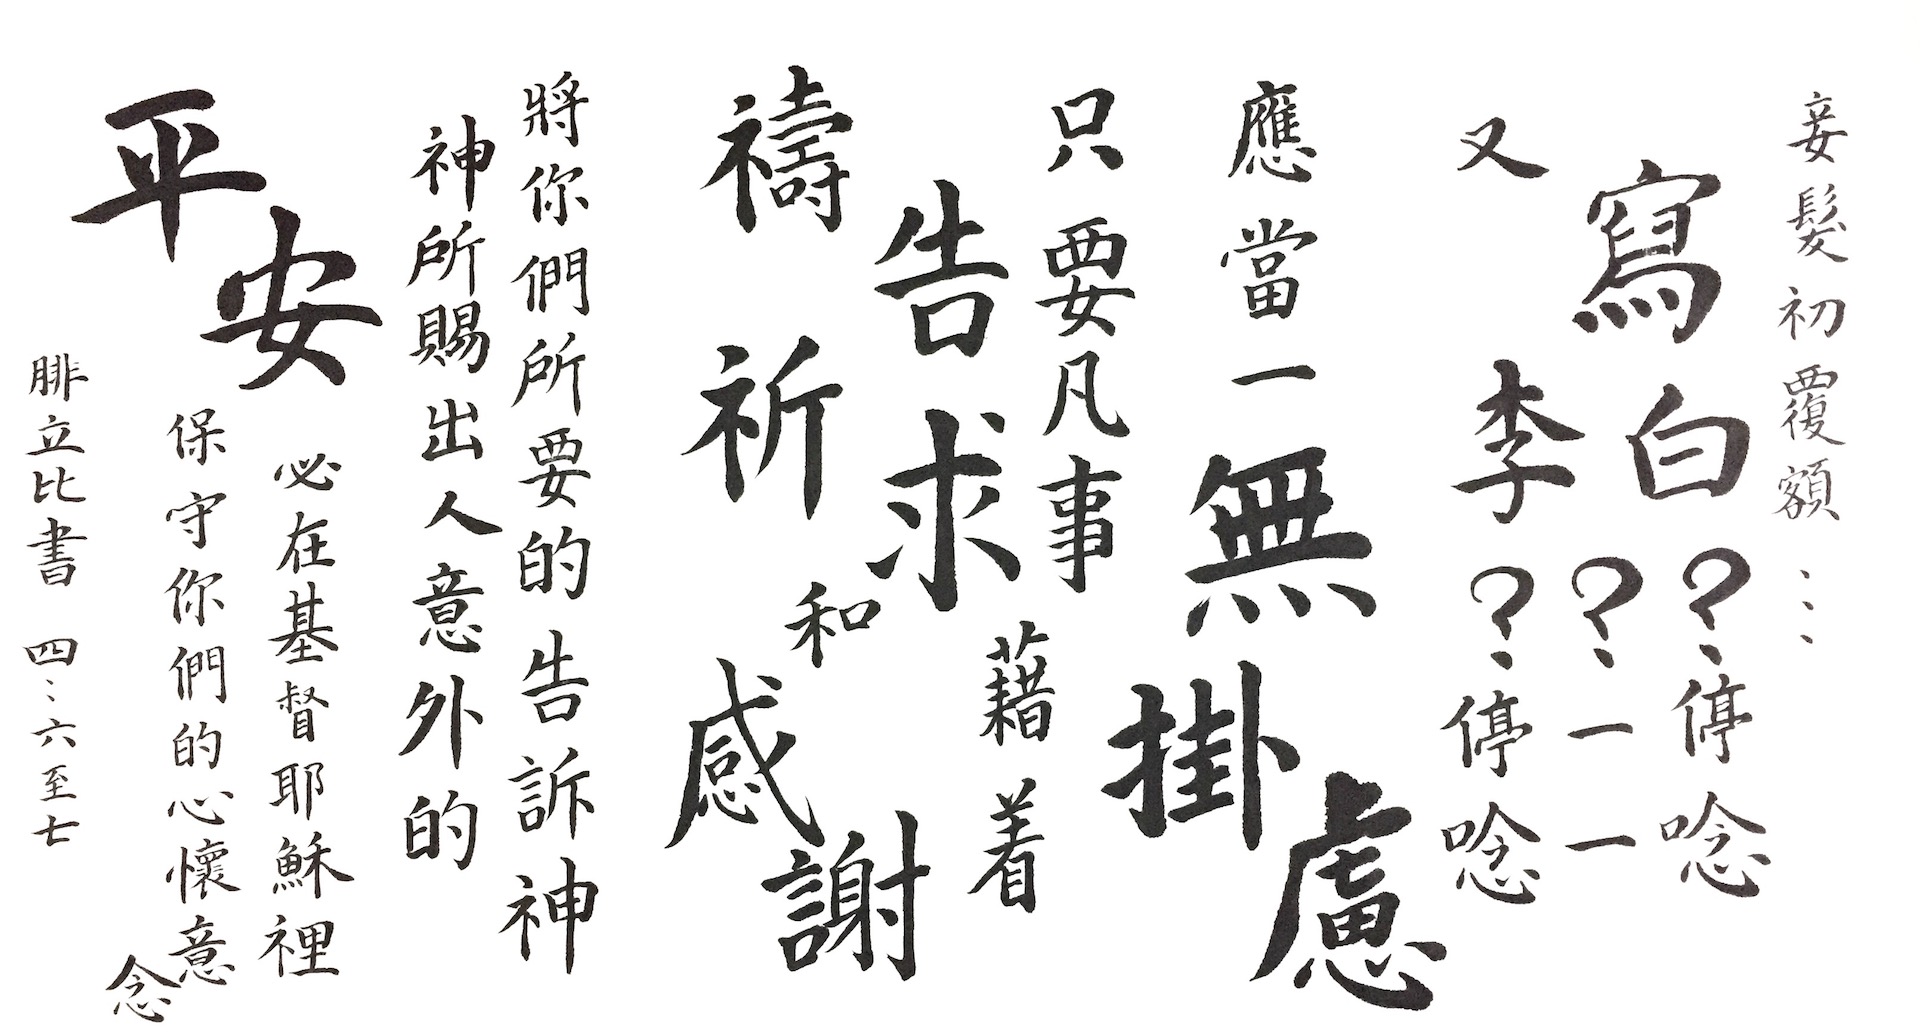 妾髮初覆額⋯
寫白？停唸
？一一
又李？停唸
應當一無掛慮
只要凡事藉着
禱告
祈求
和
感謝
將你們所要的告訴神
神所賜出人意外的
平安
必在基督耶穌裡
保守你們的心懷意念
腓立比書 四：六至七